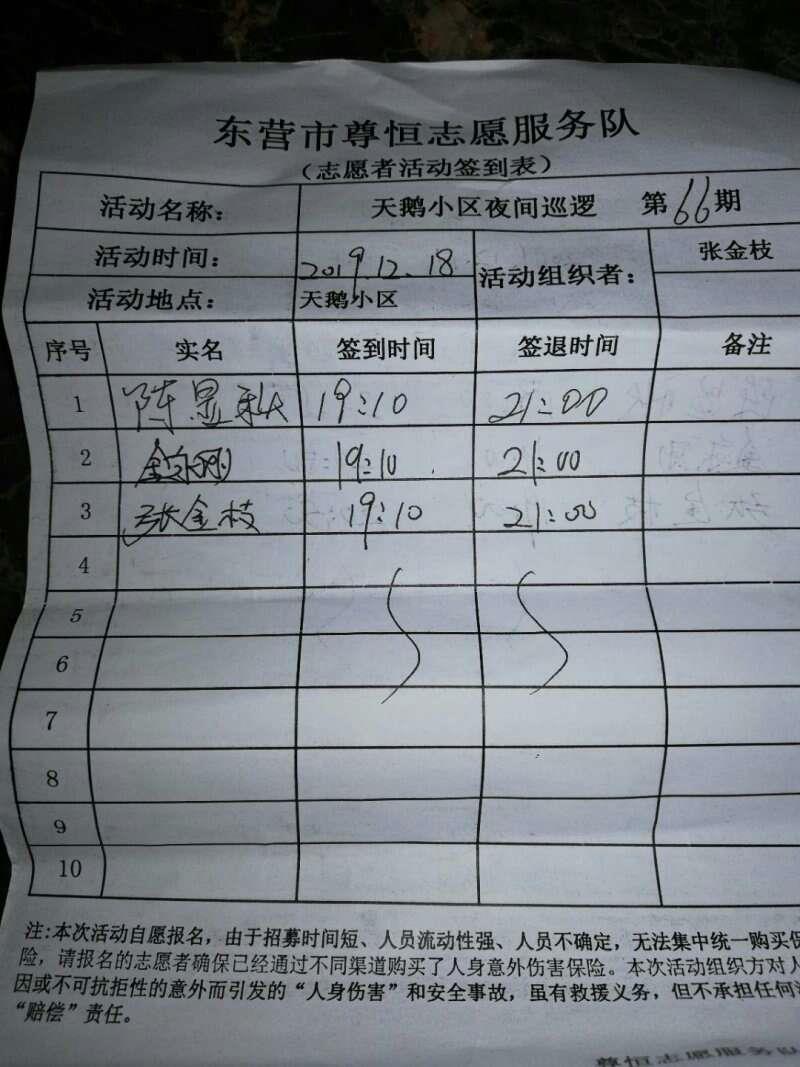 东营市尊恒志愿服务队
（志愿者活动签到表）
活动名称： 天鹅小区夜间巡逻 第66期
活动时间： 2019.12.18 活动组织者： 张金枝
活动地点： 天鹅小区
序号 实名 签到时间 签退时间 备注
1 陈显秋 19:10 21:00
2 19:10 21:00
3 张金枝 19:10 21:00
4
5
6
7
8
9
10
注:本次活动自愿报名，由于招募时间短、人员流动性强、人员不确定，无法集中统一购买保
险，请报名的志愿者确保已经通过不同渠道购买了人身意外伤害保险。本次活动组织方对人
因或不可抗拒性的意外而引发的“人身伤害”和安全事故，虽有救援义务，但不承担任何
“赔偿”责任。
尊恒志愿服务队